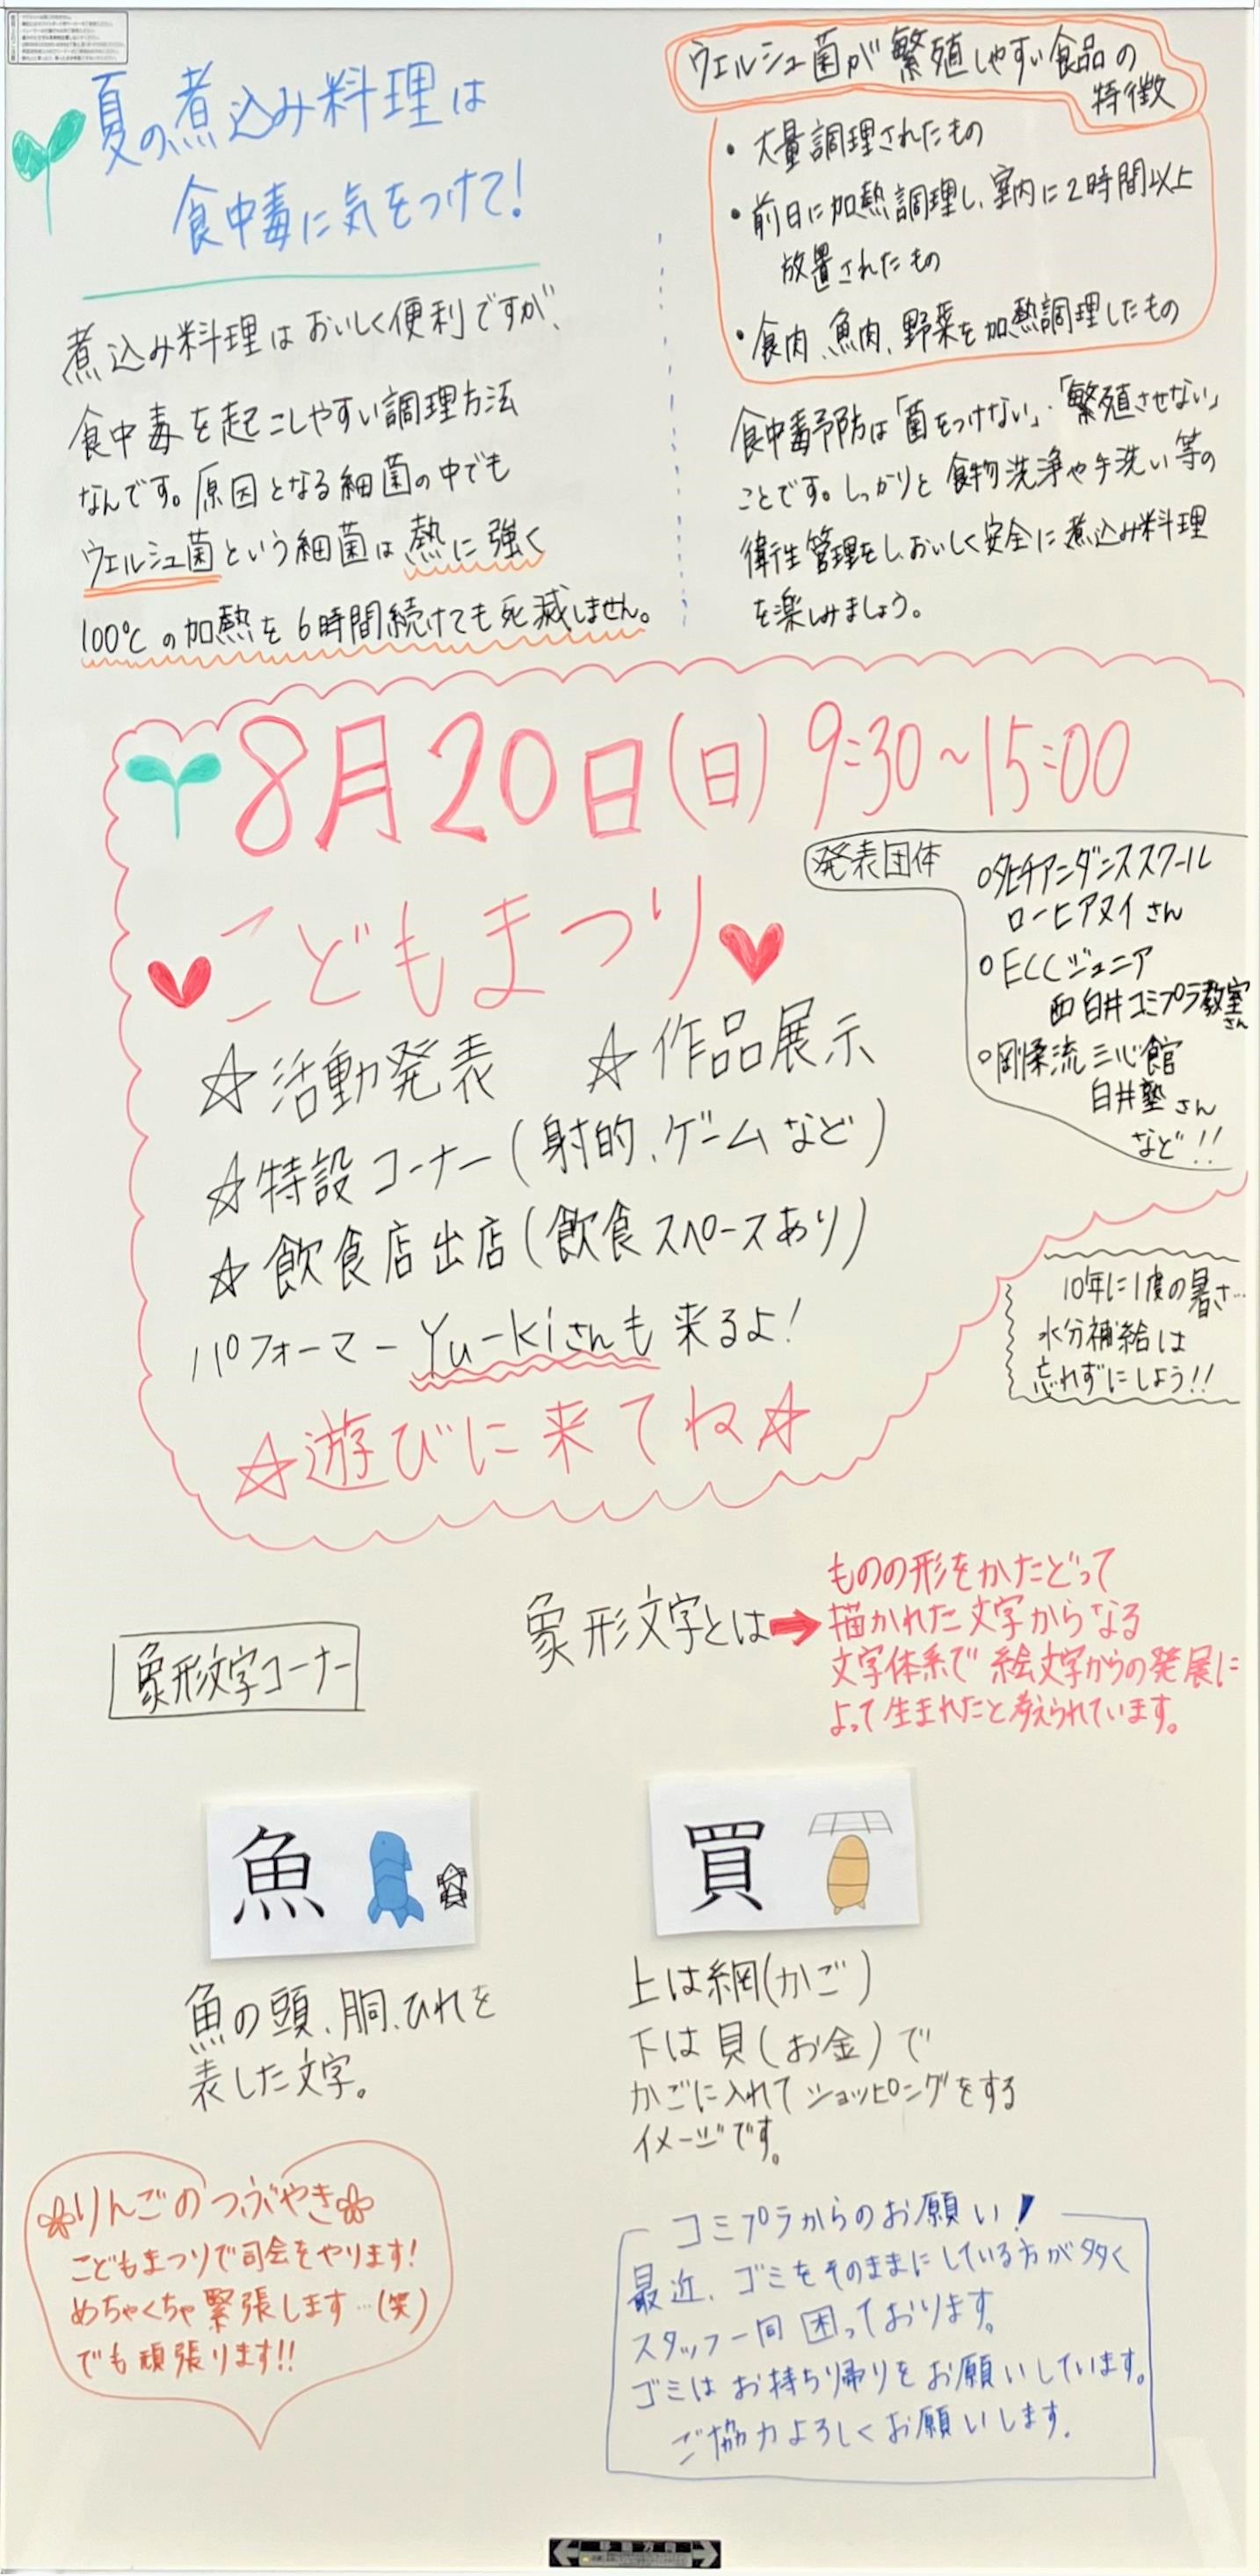 夏の煮込み料理は
食中毒に気をつけて!
煮込み料理はおいしく便利ですが、
食中毒を起こしやすい調理方法
なんです。原因となる細菌の中でも
ウェルシュ菌という細菌は熱に強く
100℃の加熱を6時間続けても死滅しません。
ウェルシュ菌が繁殖しやすい食品の
特徴
・大量調理されたもの
・前日に加熱調理し、室内に2時間以上
放置されたもの
・食肉、魚肉、野菜を加熱調理したもの
食中毒予防は「菌をつけない」・「繁殖させない」
ことです。しっかりと食物洗浄や手洗い等の
衛生管理をし、おいしく安全に煮込み料理
を楽しみましょう。
8月20日(日) 9:30~15:00
こどもまつり
☆活動発表 ☆作品展示
☆特設コーナー(射的、ゲームなど)
☆飲食店出店(飲食スペースあり)
パフォーマーYu-kiさんも来るよ!
☆遊びに来てね☆
発表団体
○タヒチアンダンススクール
ローヒアヌイさん
○ECCジュニア
西白井コミプラ教室
さん
○剛柔流三心館
白井塾さん
など!!
10年に1度の暑さ…
水分補給は
忘れずにしよう!!
象形文字コーナー
象形文字とは➡
ものの形をかたどって
描かれた文字からなる
文字体系で絵文字からの発展に
よって生まれたと考えられています。
魚
魚の頭、胴、ひれを
表した文字。
買
上は網(かご)
下は貝(お金)で
かごに入れてショッピングをする
イメージです。
りんごのつぶやき
こどもまつりで司会をやります!
めちゃくちゃ緊張します…(笑)
でも頑張ります!!
コミプラからのお願い!
最近、ゴミをそのままにしている方が多く
スタッフ一同困っております。
ゴミはお持ち帰りをお願いしています。
ご協力よろしくお願いします。
移動方向